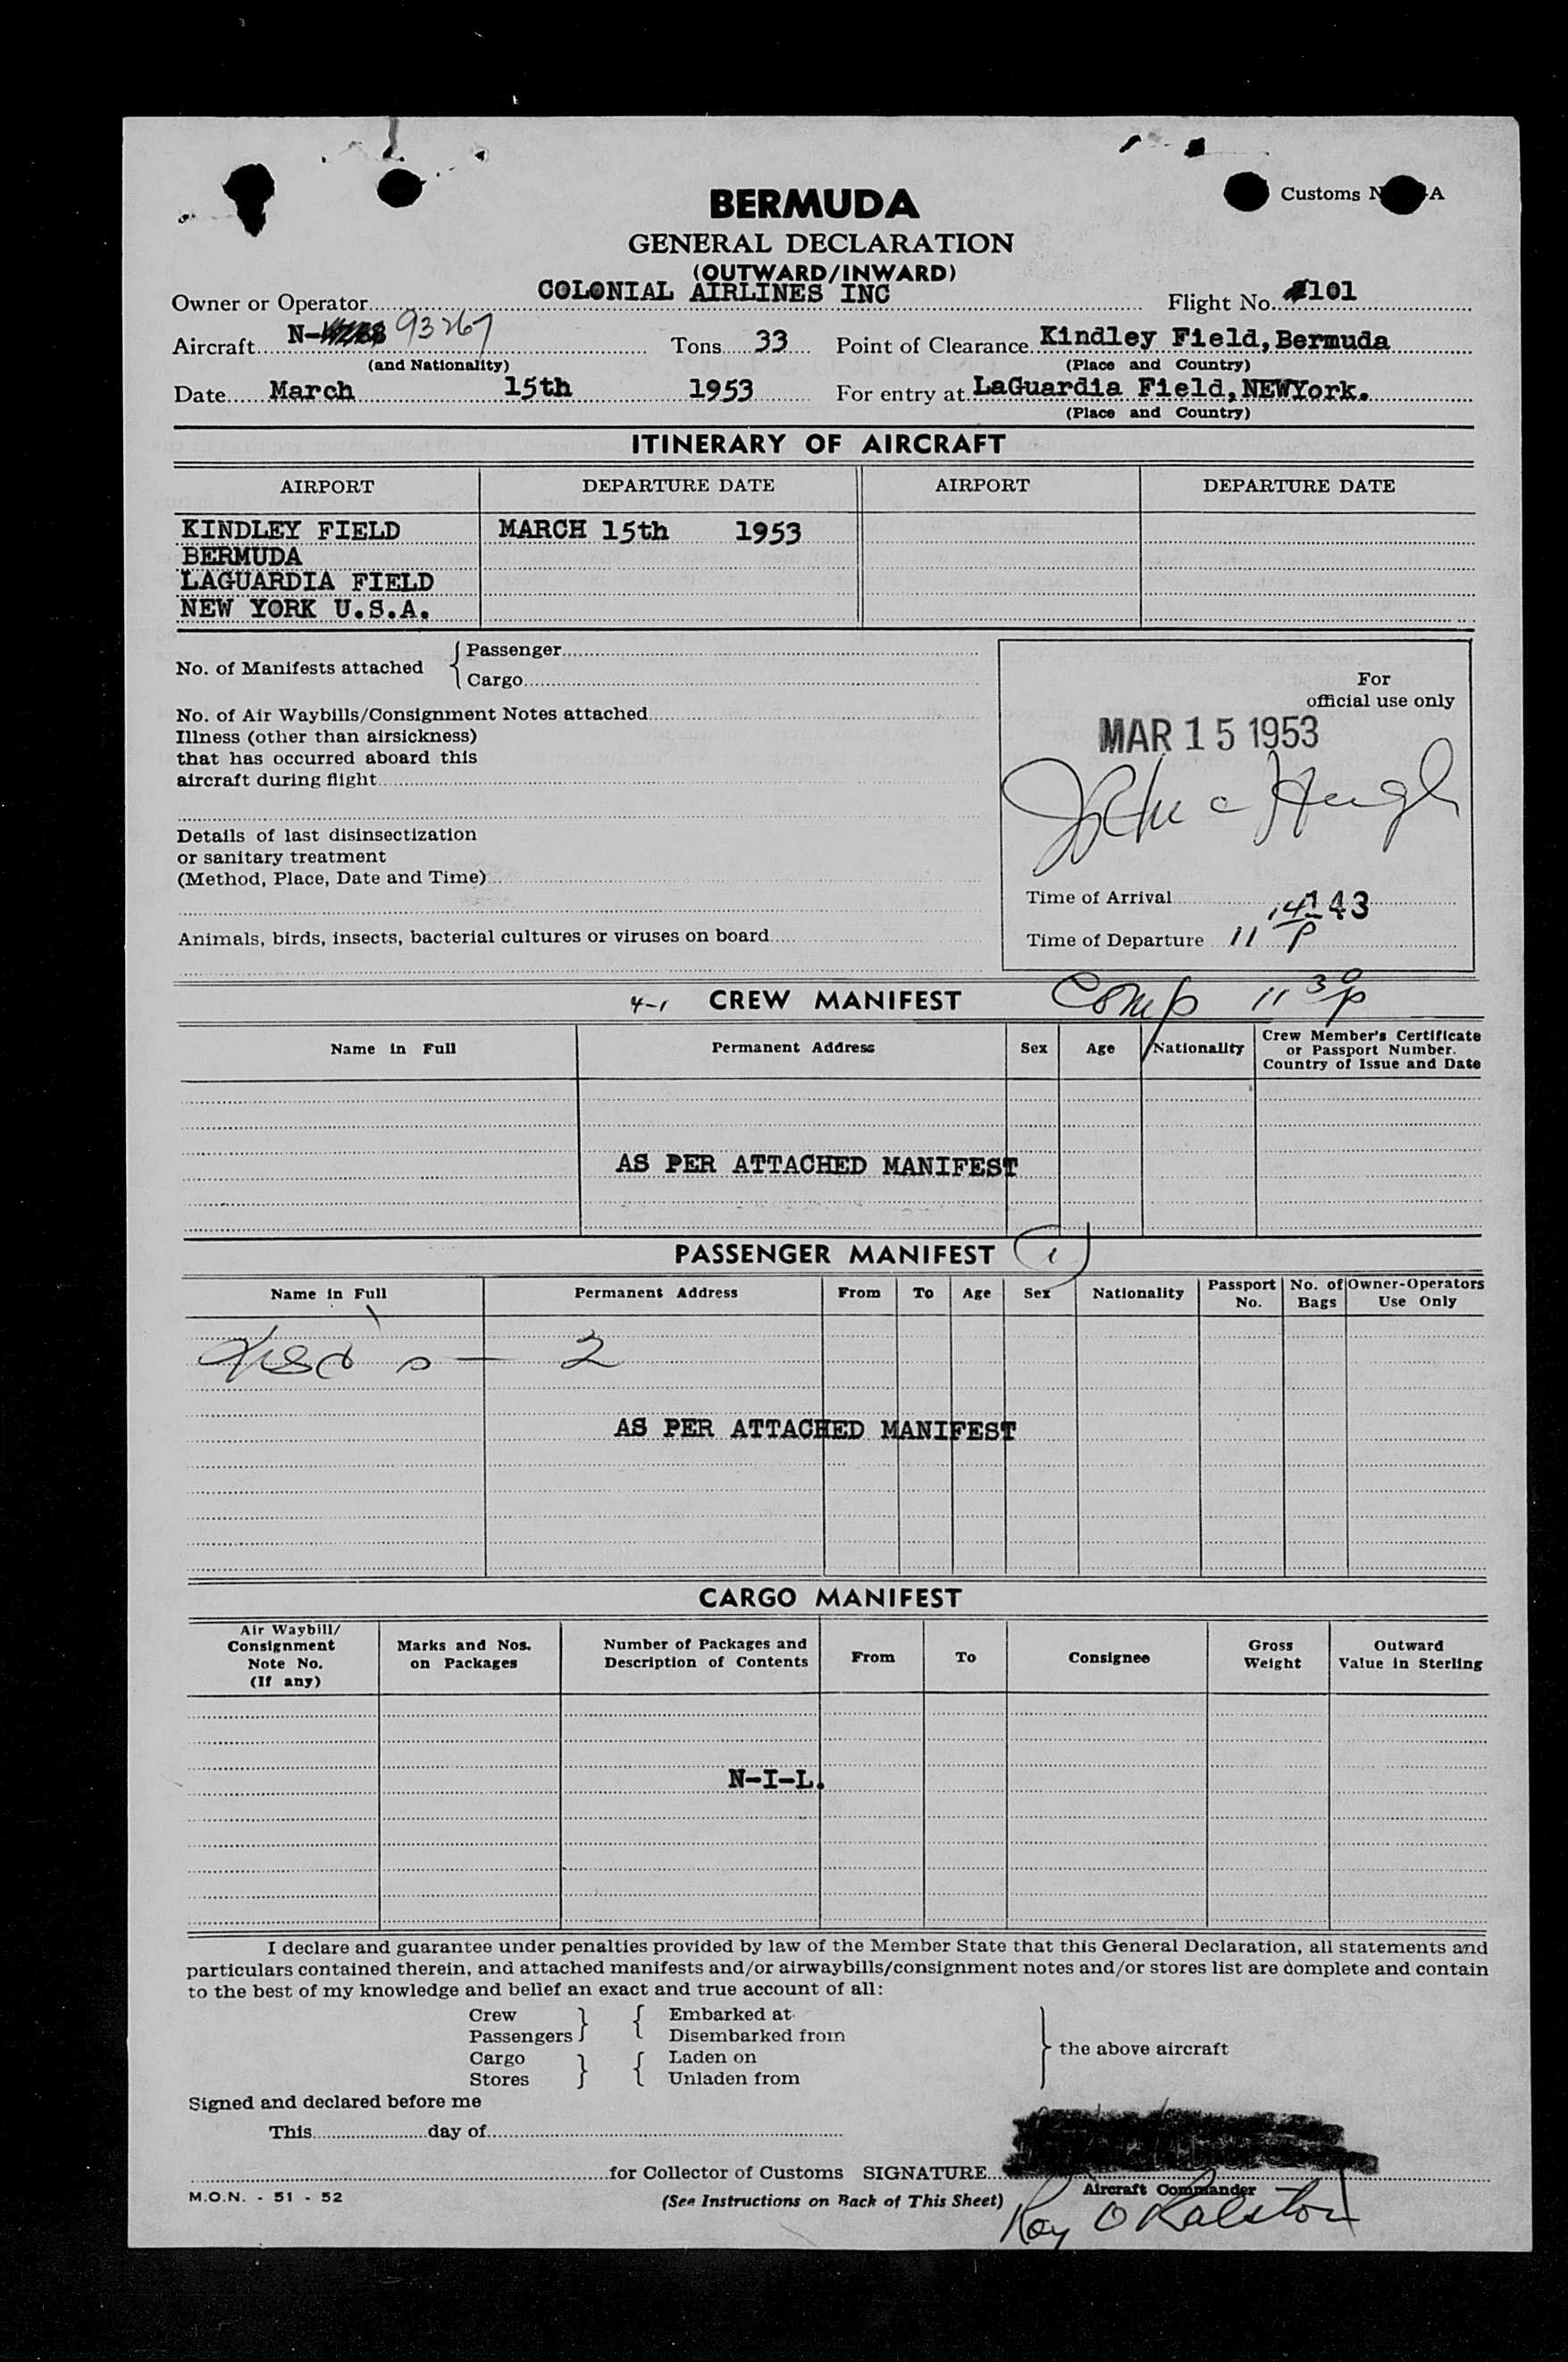 BERMUDA
Customs
A
GENERAL DECLARATION
(OUTWARD/INWARD)
Owner or Operator COLONIAL AIRLINES INC Flight No. 101
Aircraft N- 93267 Tons 33 Point of Clearance Kindley Field, Bermuda
(and Nationality) (Place and Country)
Date March 15th 1953 For entry at LaGuardia Field, NEWYork.
(Place and Country)
ITINERARY OF AIRCRAFT
AIRPORT DEPARTURE DATE AIRPORT DEPARTURE DATE
KINDLEY FIELD MARCH 15th 1953
BERMUDA
LAGUARDIA FIELD
NEW YORK U.S.A.
No. of Manifests attached
Passenger
Cargo
No. of Air Waybills/Consignment Notes attached
Illness (other than airsickness)
that has occurred aboard this
aircraft during flight
Details of last disinsectization
or sanitary treatment
(Method, Place, Date and Time)
Animals, birds, insects, bacterial cultures or viruses on board
For
official use only
MAR 15 1953
Time of Arrival
Time of Departure 11
4-1 CREW MANIFEST Comp 11 30 p
Name in Full Permanent Address Sex Age Nationality Crew Member's Certificate
or Passport Number.
Country of Issue and Date
AS PER ATTACHED MANIFEST
PASSENGER MANIFEST 1
Name in Full Permanent Address From To Age Sex Nationality Passport No. No. of Bags Owner-Operators Use Only
2
AS PER ATTACHED MANIFEST
CARGO MANIFEST
Air Waybill/
Consignment
Note No.
(If any)
Marks and Nos.
on Packages
Number of Packages and
Description of Contents
From To Consignee
Gross
Weight
Outward
Value in Sterling
N-I-L.
I declare and guarantee under penalties provided by law of the Member State that this General Declaration, all statements and
particulars contained therein, and attached manifests and/or airwaybills/consignment notes and/or stores list are complete and contain
to the best of my knowledge and belief an exact and true account of all:
Crew Embarked at
Passengers Disembarked from
Cargo Laden on
Stores Unladen from
the above aircraft
Signed and declared before me
This day of
for Collector of Customs SIGNATURE
Aircraft Commander
M.O.N. - 51 - 52 (See Instructions on Back of This Sheet)
Roy O Ralston